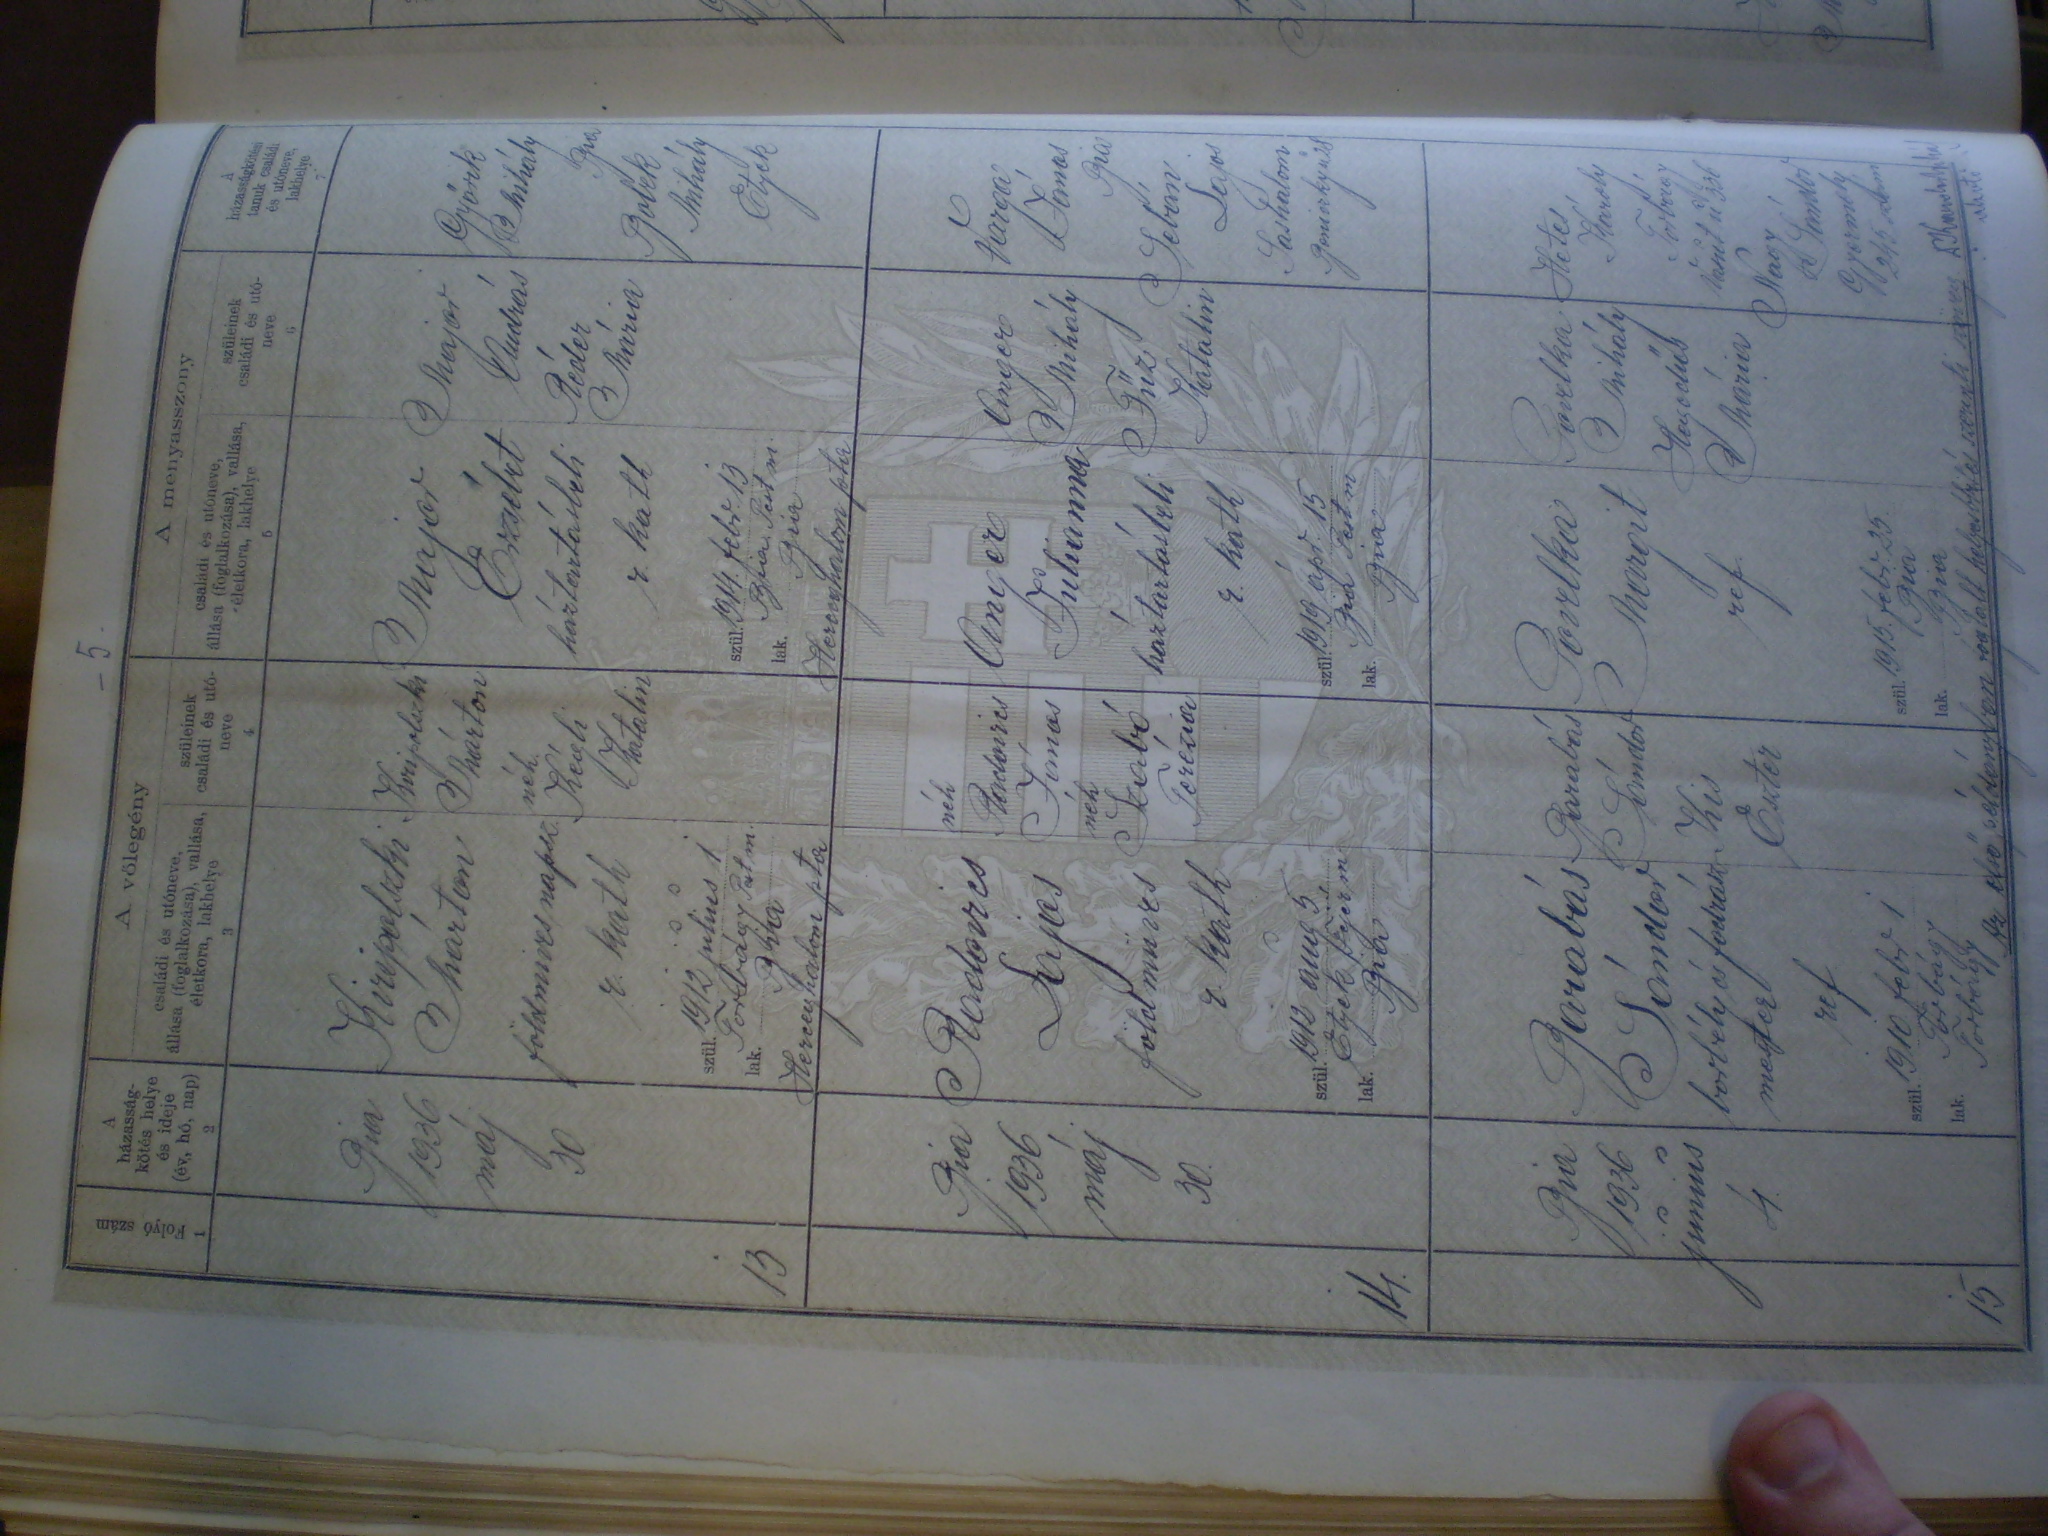 - 5.
A vőlegény
A menyasszony
Folyó szám
1
A
házasság-
kötés helye
és ideje
(év, hó, nap)
2
családi és utóneve,
állása (foglalkozása), vallása,
életkora, lakhelye
3
szüleinek
családi és utó-
neve
4
családi és utóneve,
állása (foglalkozása), vallása,
életkora, lakhelye
5
szüleinek
családi és utó-
neve
6
A
házasságkötési
tanuk családi
és utóneve,
lakhelye
7
13
Bia
1936
máj
30
Kiripolszki
Márton
földmives naps.
r. kath
szül. 1912 julius 1
Torbágy Pest m.
lak. Bia
Herceghalom pta
Kiripolszki
Márton
néh.
Kégli
Katalin
Major
Erzsébet
háztartásbeli
r. kath
szül. 1914. febr 13
Bia Pest m.
lak. Bia
Herceghalom pta
Major
András
Réder
Mária
Györk
Mihály
Bia
Bobek
Mihály
Etyek
14.
Bia
1936
máj
30.
Radovics
Lajos
földmüves
r. kath
szül. 1912 aug 5
Etyek Fejér m
lak. Bia
néh
Radovics
János
néh
Szabó
Terézia
Unger
Julianna
háztartásbeli
r. kath
szül. 1919 ápr. 15
Bia Pest m
lak. Bia
Unger
Mihály
Füzi
Katalin
Varga
János
Bia
Lajos
Sashalom
15
Bia
1936
junius
4.
Barabás
Sándor
borbély és fodrász
mester
ref
szül. 1910 febr 1
Torbágy
lak. Torbágy
Barabás
Sándor
Kis
Eszter
Pavelka
Margit
ref.
szül. 1915. febr. 25.
Bia
lak. Bia
Pavelka
Mihály
Hegedüs
Mária
Hetes
Károly
Torbágy
Nagy
Sándor
Gyermely
245 szám
Az első példányban